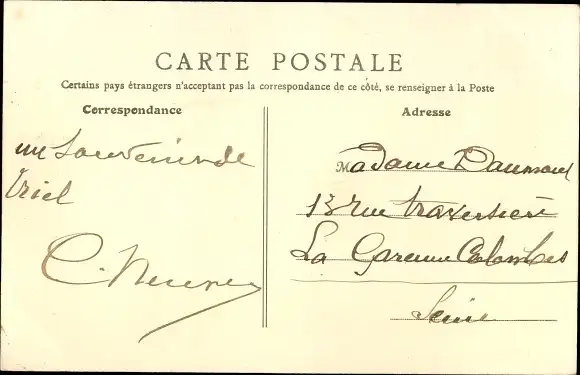 CARTE POSTALE
Certains pays étrangers n'acceptant pas la correspondance de ce côté, se renseigner à la Poste
Correspondance
un souvenir de
Triel
Adresse
Madame Daumont
13 rue traversière
La Garenne Colombes
Seine